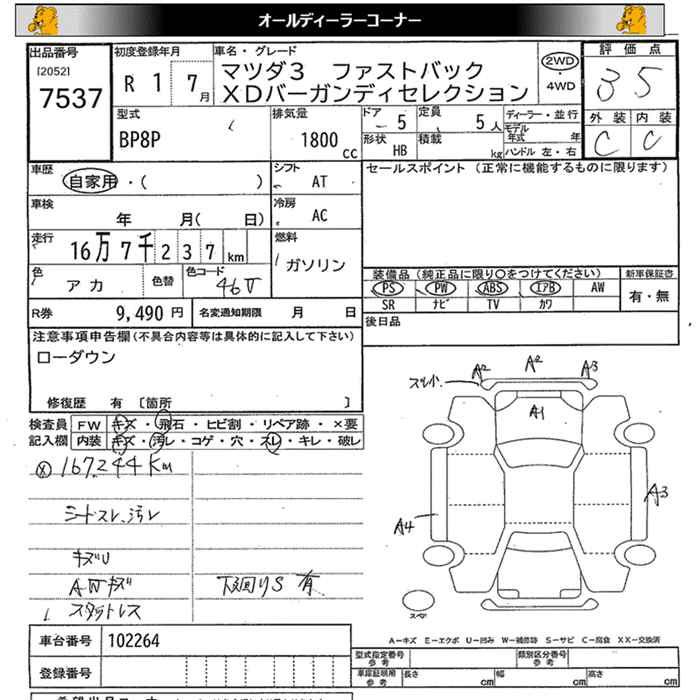 オールディーラーコーナー
出品番号 初度登録年月 車名・グレード 評価点
[2052]
7537
R 1 7月
マツダ3 ファストバック
XDバーガンディセレクション
2WD
・
4WD
3 5
型式 排気量 ドア 定員 ディーラー・並行 外装 内装
BP8P 1800cc 5 5人 モデル年式 年
形状 HB 積載 kg ハンドル 左・右 C C
車歴 自家用・( ) シフト AT セールスポイント (正常に機能するものに限ります)
車検 年 月( 日) 冷房 AC
走行 16万7千237km 燃料 ガソリン
色 アカ 色替 色コード 46V
装備品(純正品に限り○をつけてください) 新車保証書
PS PW ABS エアB AW 有・無
SR ナビ TV カワ
R券 9,490円 名変通知期限 月 日
後日品
注意事項申告欄(不具合内容等は具体的に記入して下さい)
ローダウン
修復歴 有 [箇所 ]
検査員 FW キズ・飛石・ヒビ割・リペア跡・×要
記入欄 内装 キズ・汚レ・コゲ・穴・スレ・キレ・破レ
167,244Km
シートスレ、汚レ
キズU
AWキズ 下廻りS 有
スタットレス
A2 A2 A3
A1
A3
A4
スペア
A-キズ E-エクボ U-凹み W-補修跡 S-サビ C-腐食 XX-交換済
車台番号 102264
型式指定番号 参考 類別区分番号 参考
登録番号
車庫証明用 参考 長さ cm 幅 cm 高さ cm